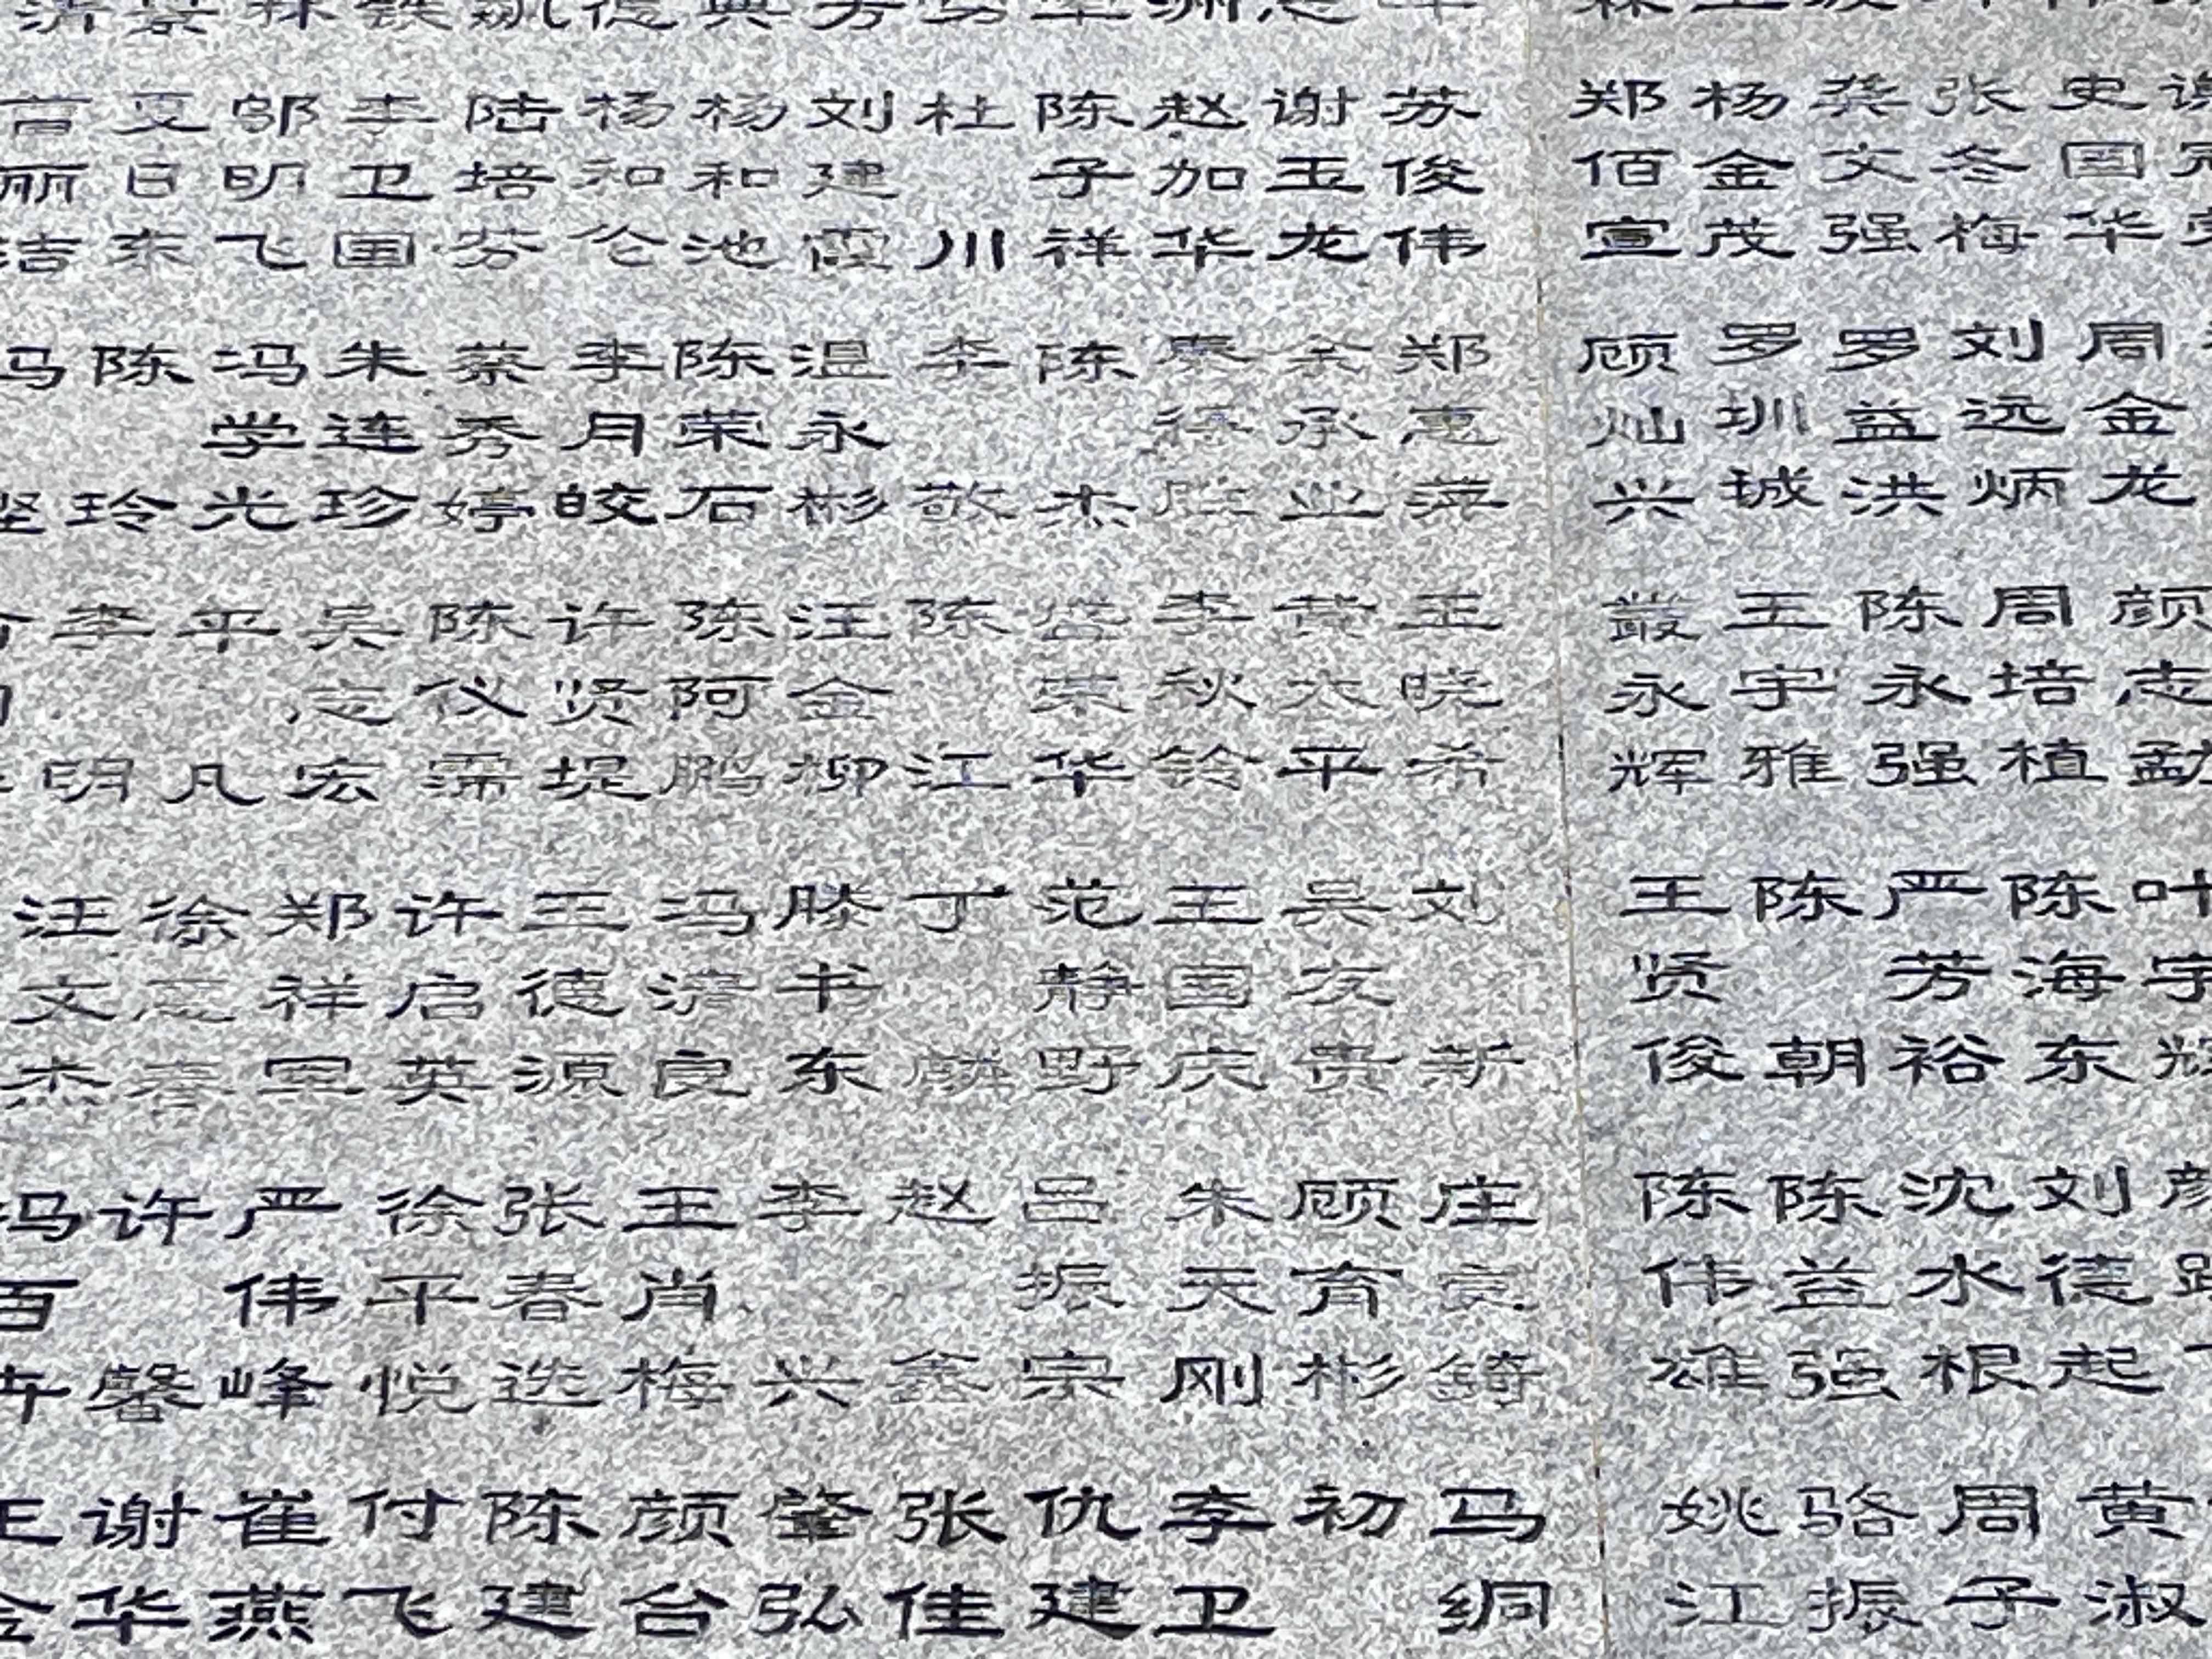 史国华
张冬梅
龚文强
杨金茂
郑佰宣
周金龙
刘远炳
罗益洪
罗圳城
顾灿兴
颜志勐
周培植
陈永强
王宇雅
永辉
叶宇
陈海东
严芳裕
陈朝
王贤俊
刘德起
沈水根
陈益强
陈伟雄
黄淑
周子
骆振
姚江
苏俊伟
谢玉龙
赵加华
陈子祥
杜川
刘建霞
杨和池
杨和伦
陆培芬
李卫国
邬明飞
夏日东
丽洁
郑惠萍
余承业
秦胜
陈杰
李敬
温永彬
陈荣石
李月皎
蔡秀婷
朱连珍
冯学光
陈玲
冯坚
王晓希
黄太平
李秋铃
盛荣华
陈江
汪金柳
陈阿鹏
许贤堤
陈仪濡
吴志宏
平凡
李明
刘新
吴友贵
王国庆
范静野
丁麟
滕书东
冯济良
王德源
许启英
郑祥军
徐志春
汪文杰
庄良錡
顾育彬
朱天刚
吕振宗
赵鑫
李兴
王肖梅
张春选
徐平悦
严伟峰
许馨
冯百卉
马绸
初
李卫
仇建
张佳
肇弘
颜台
陈建
付飞
崔燕
谢华
王金